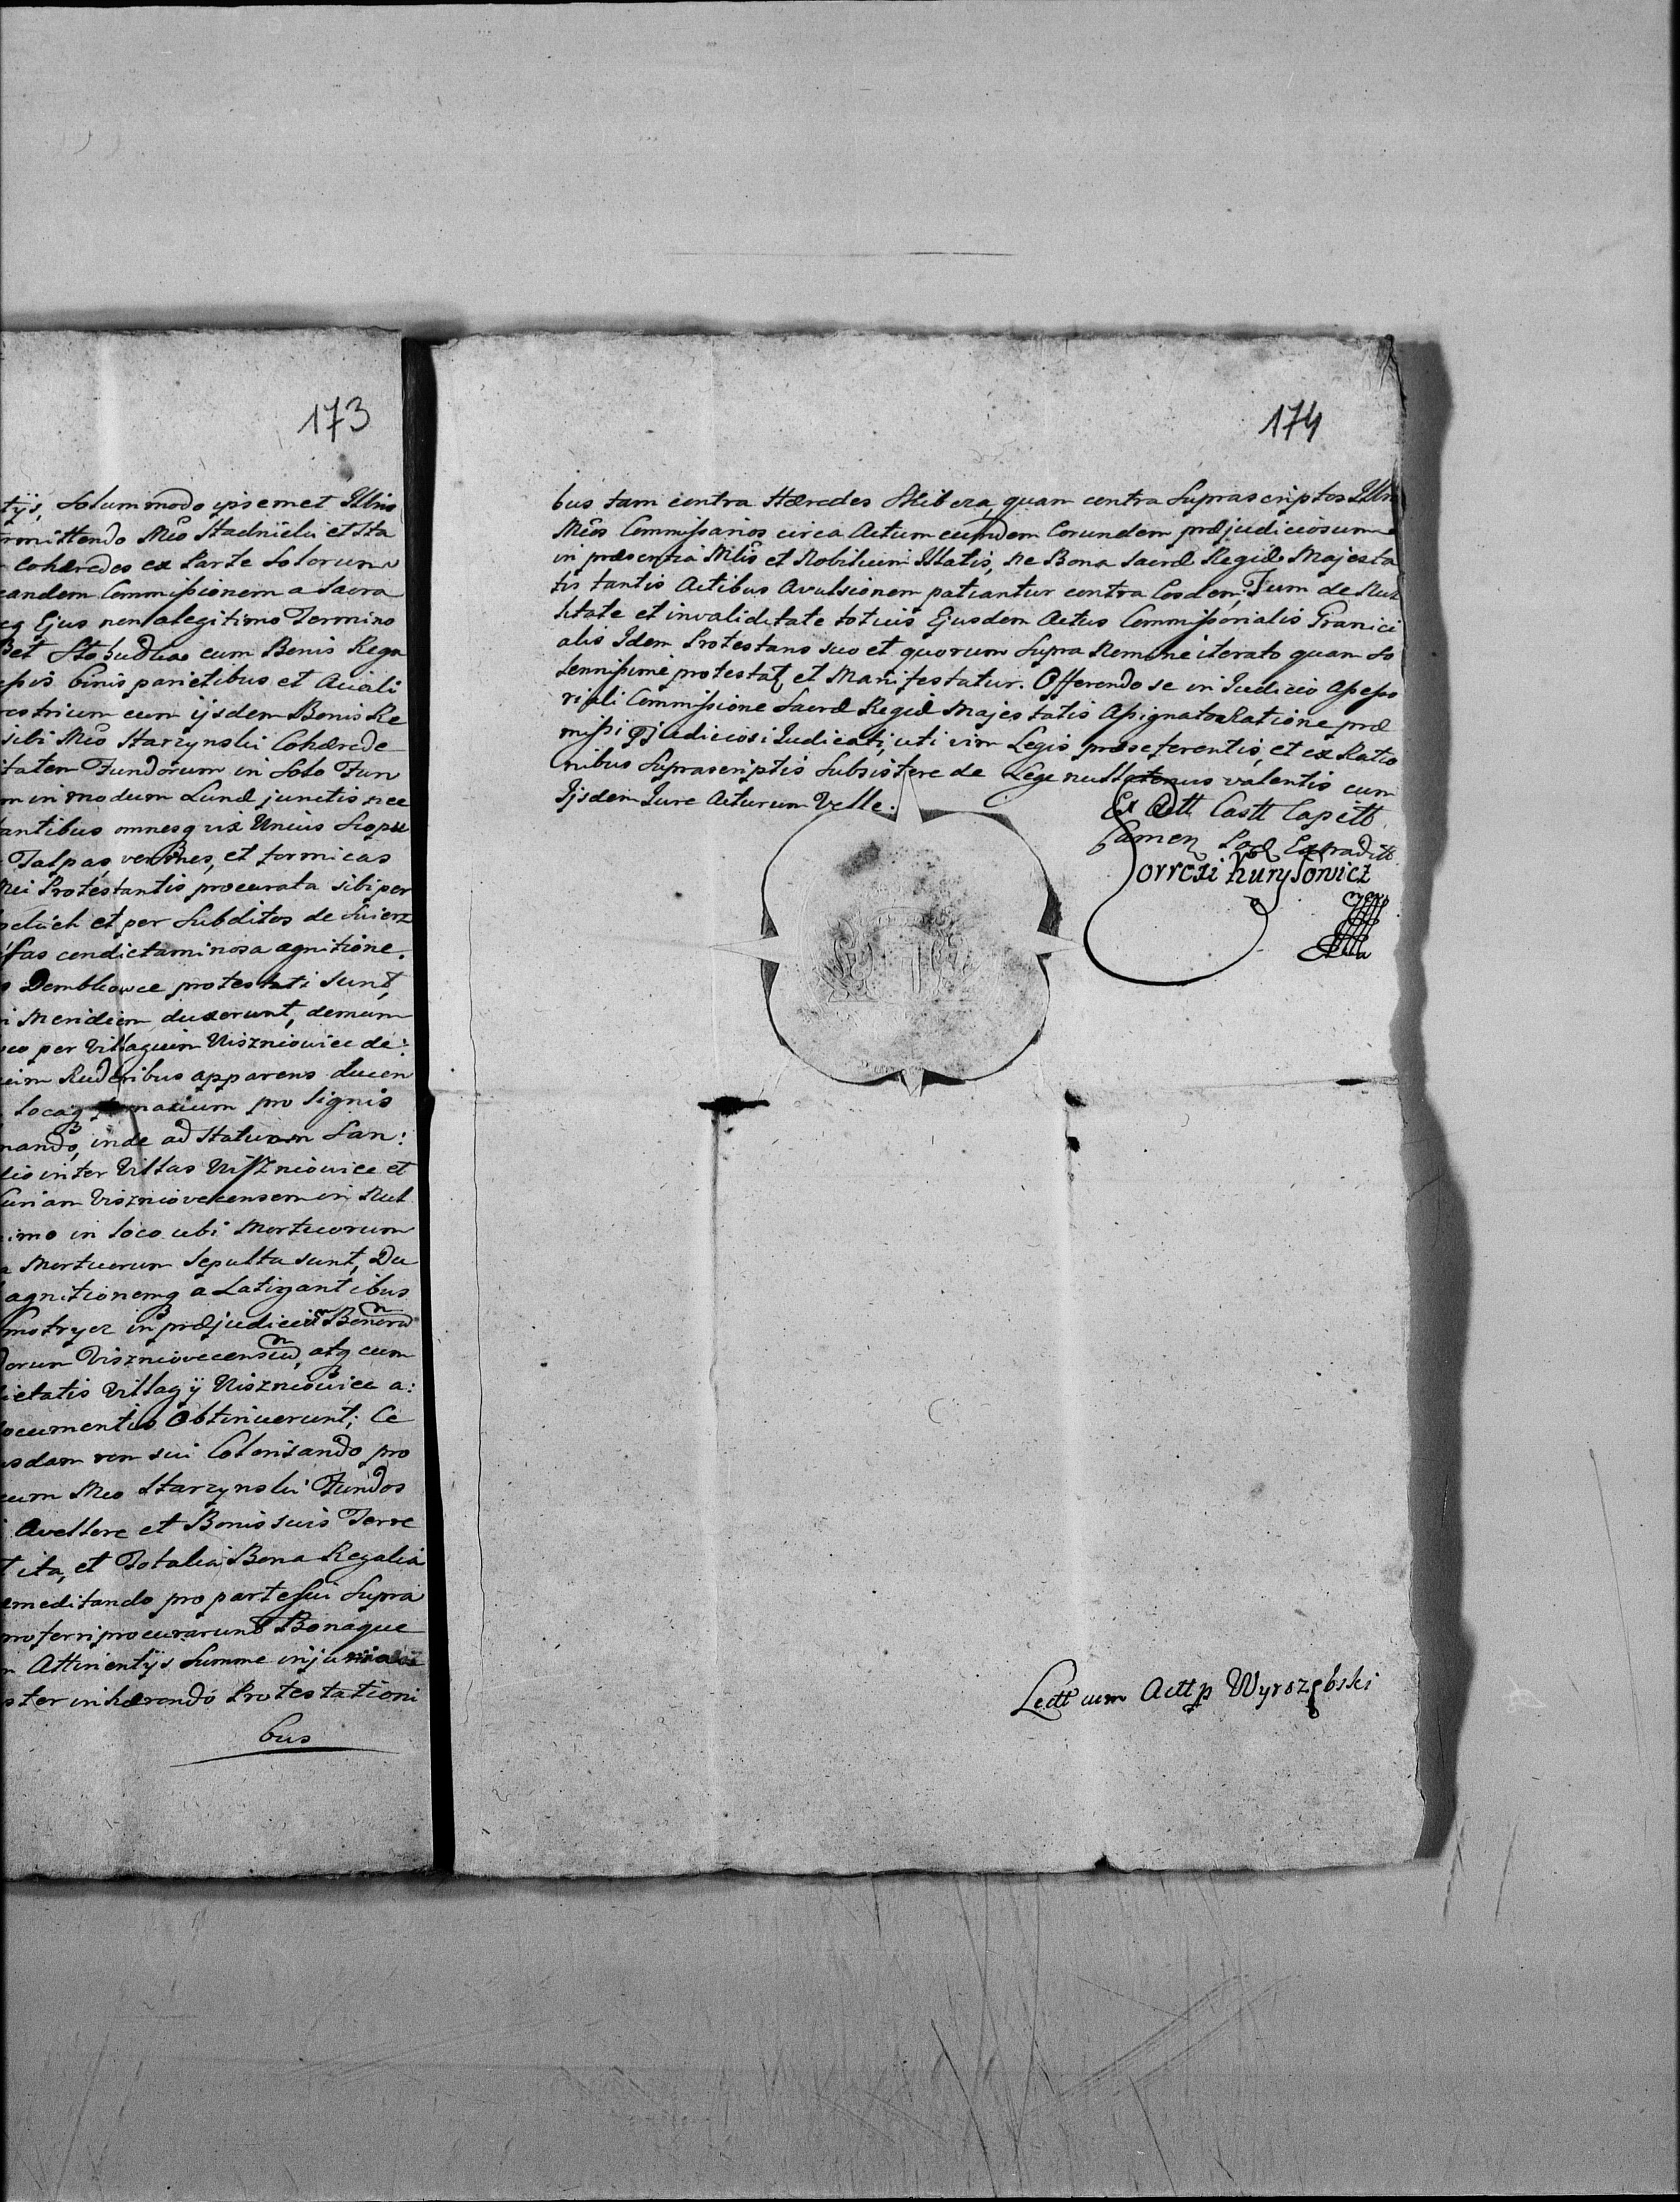 173
tÿs, solummodo ipsemet Illris
mittendo Mco Stadnicki et Sta
Cohæredes ex Parte Solorum
eandem Commissionem a Sacra
Ejus non a legitimo Termino
et Stobudka cum Bonis Rega
binis parietibus et Aviali
cum ijsdem Bonis Re
sibi Mco Starzynski Cohærede
itatem Fundorum in Solo Fun
m in modum Lunæ junctis nec
tantibus omnesq vix Unius Scopu
Talpas, vermes, et formicas
Mci Protestantis procurata sibi per
et per Subditos de
fas condictaminosa agnitione.
Dembkowce protestati sunt,
Meridiem duxerunt, demum
per Villagium Viszniowice de:
Ruderibus apparens ducen
locaq pro signis
nando, inde ad Statuam San:
inter Villas Viszniowice et
Curiam Visznioveccensem in Nul
imo in loco ubi Mortuorum
Mortuorum Sepulta sunt, Du
agnitionemq a Latigantibus
Smotrycz in præjudiciu Bonoru
orum Viszniovecensiu, atq cum
ietatis Villagÿ Viszniowice a:
ocumentis Obtinuerunt; Ce
usdam rem sui Colorisando pro
cum Mco Starzynski Fundos
Avellere et Bonis suis Terre
ita, et Totalia Bona Regalia
emeditando pro parte sui Supra
ferri procurarunt Bonaque
Attinentÿs Summe
ster inhærendo Protestationi
bus
174
bus tam contra Hæredes Skibera, quam contra Suprascriptos Illrs
Mcos Commissarios circa Actum eumdem Eorundem præjudiciosum
in præsentia Mlis et Nobilium Illatis, ne Bona Sacræ Regiæ Majesta
tis tantis Actibus Avulsionem patiantur contra Eosdem; Tum de Nul
litate et invaliditate totius Ejusdem Actus Commissorialis Granici
alis Idem Protestans suo et quorum Supra Nomine iterato quam So
lennissime protestat et Manifestatur. Offerendo se in Judicio Assesso
riali Commissione Sacræ Regiæ Majestatis Assignator Ratione præ
missi Judicati, uti vim Legis præseferentis, et ex Ratio
nibus Suprascriptis Subsistere de Lege nullatenus valentis cum
Ijsdem Jure Acturum Velle.
Ex Actt Castt Capitt
Camen Pod Extraditt
Correxi Kurylowicz
Lectt cum Actt p Wyrozębski